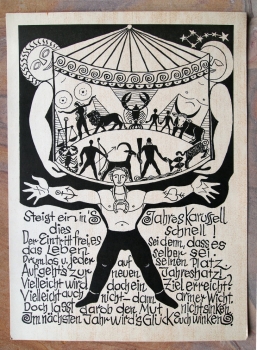 Steigt ein in's Jahreskarusell
dies schnell!
Der Eintritt frei, es sei denn, dass es
das Leben selber sei.
Drum los u. jeder auf seinen Platz.
Auf geht's zur neuen Jahreshatz!
Vielleicht wird doch ein Ziel erreicht
Vielleicht auch nicht - dann armer Wicht,
Doch lasst darob den Mut nicht sinken
Im nächsten Jahr wird's Glück Euch winken